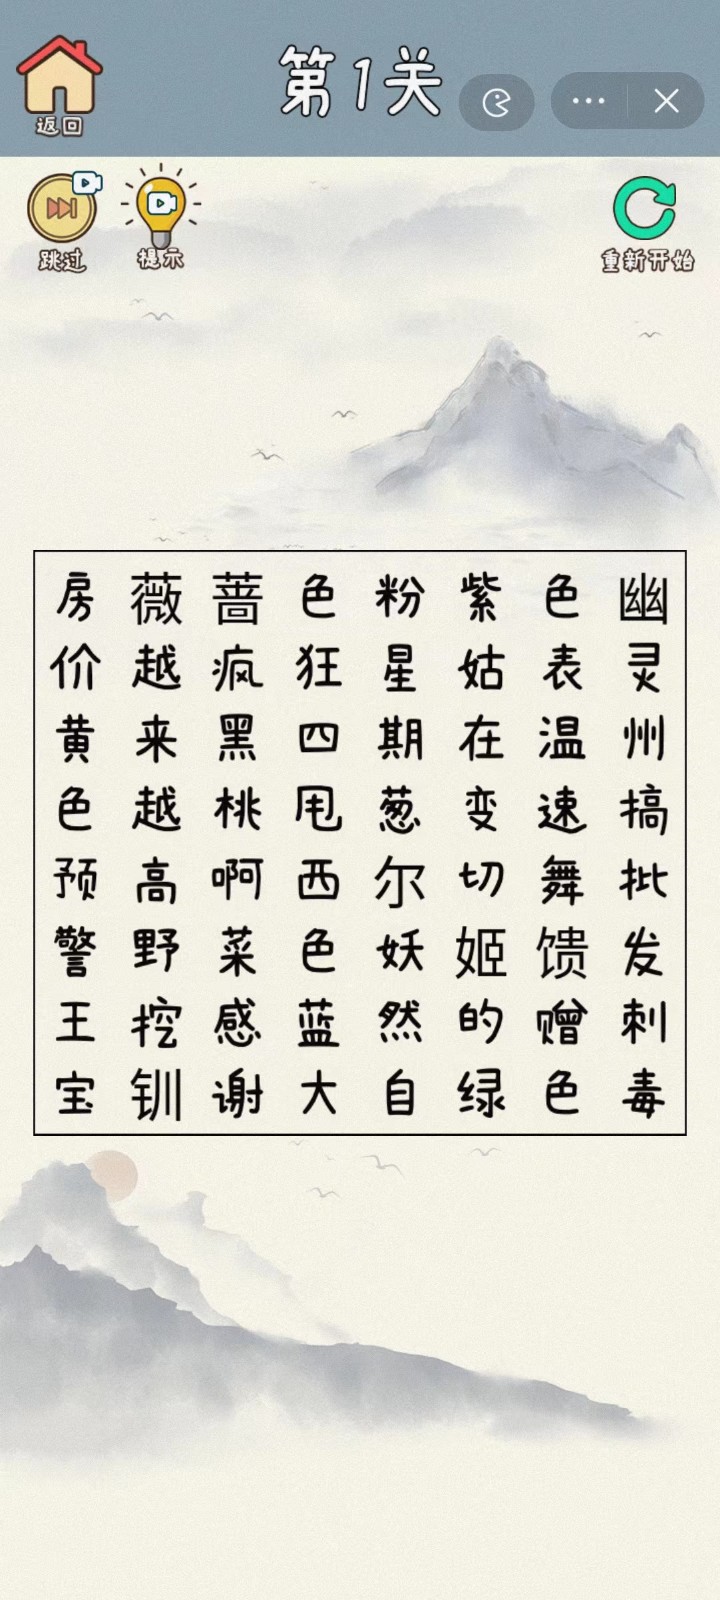 第1关
返回
跳过
提示
重新开始
房薇蔷色粉紫色幽
价越疯狂星姑表灵
黄来黑四期在温州
色越桃甩葱变速搞
预高啊西尔切舞批
警野菜色妖姬馈发
王挖感蓝然的赠刺
宝钏谢大自绿色毒